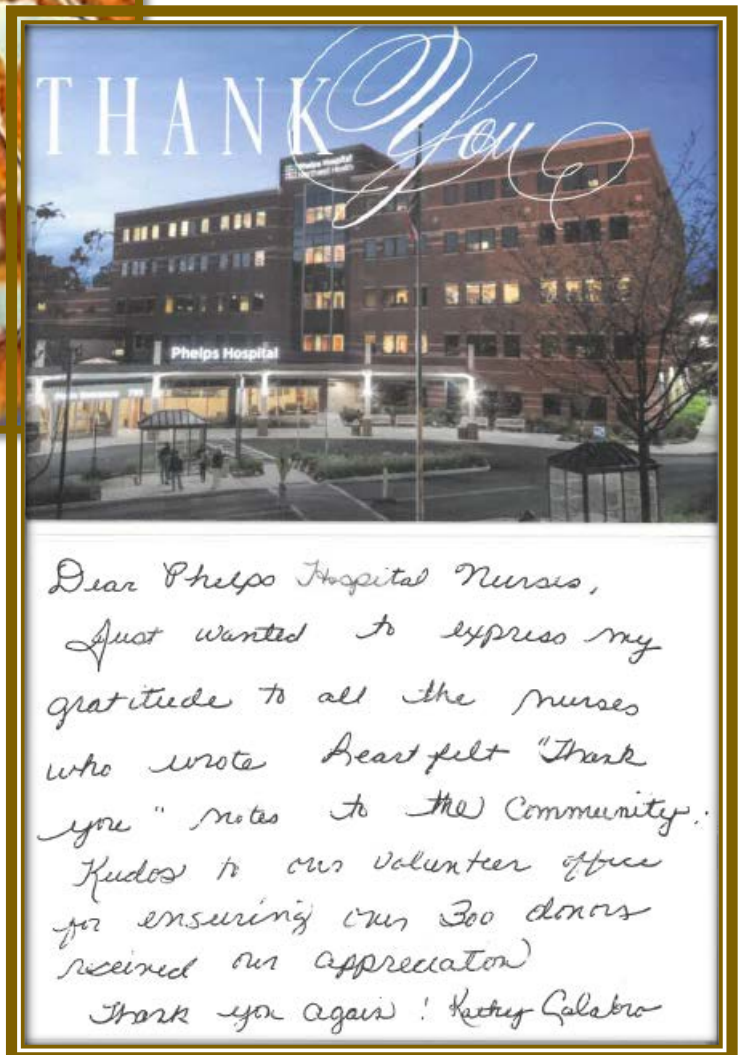 THANK You
Phelps Hospital
Northwell Health
Phelps Hospital
Dear Phelps Hospital Nurses,
Just wanted to express my
gratitude to all the nurses
who wrote heartfelt "Thank
you" notes to the Community.
Kudos to our volunteer office
for ensuring our 300 donors
received our appreciaton
Thank you again! Kathy Calabro